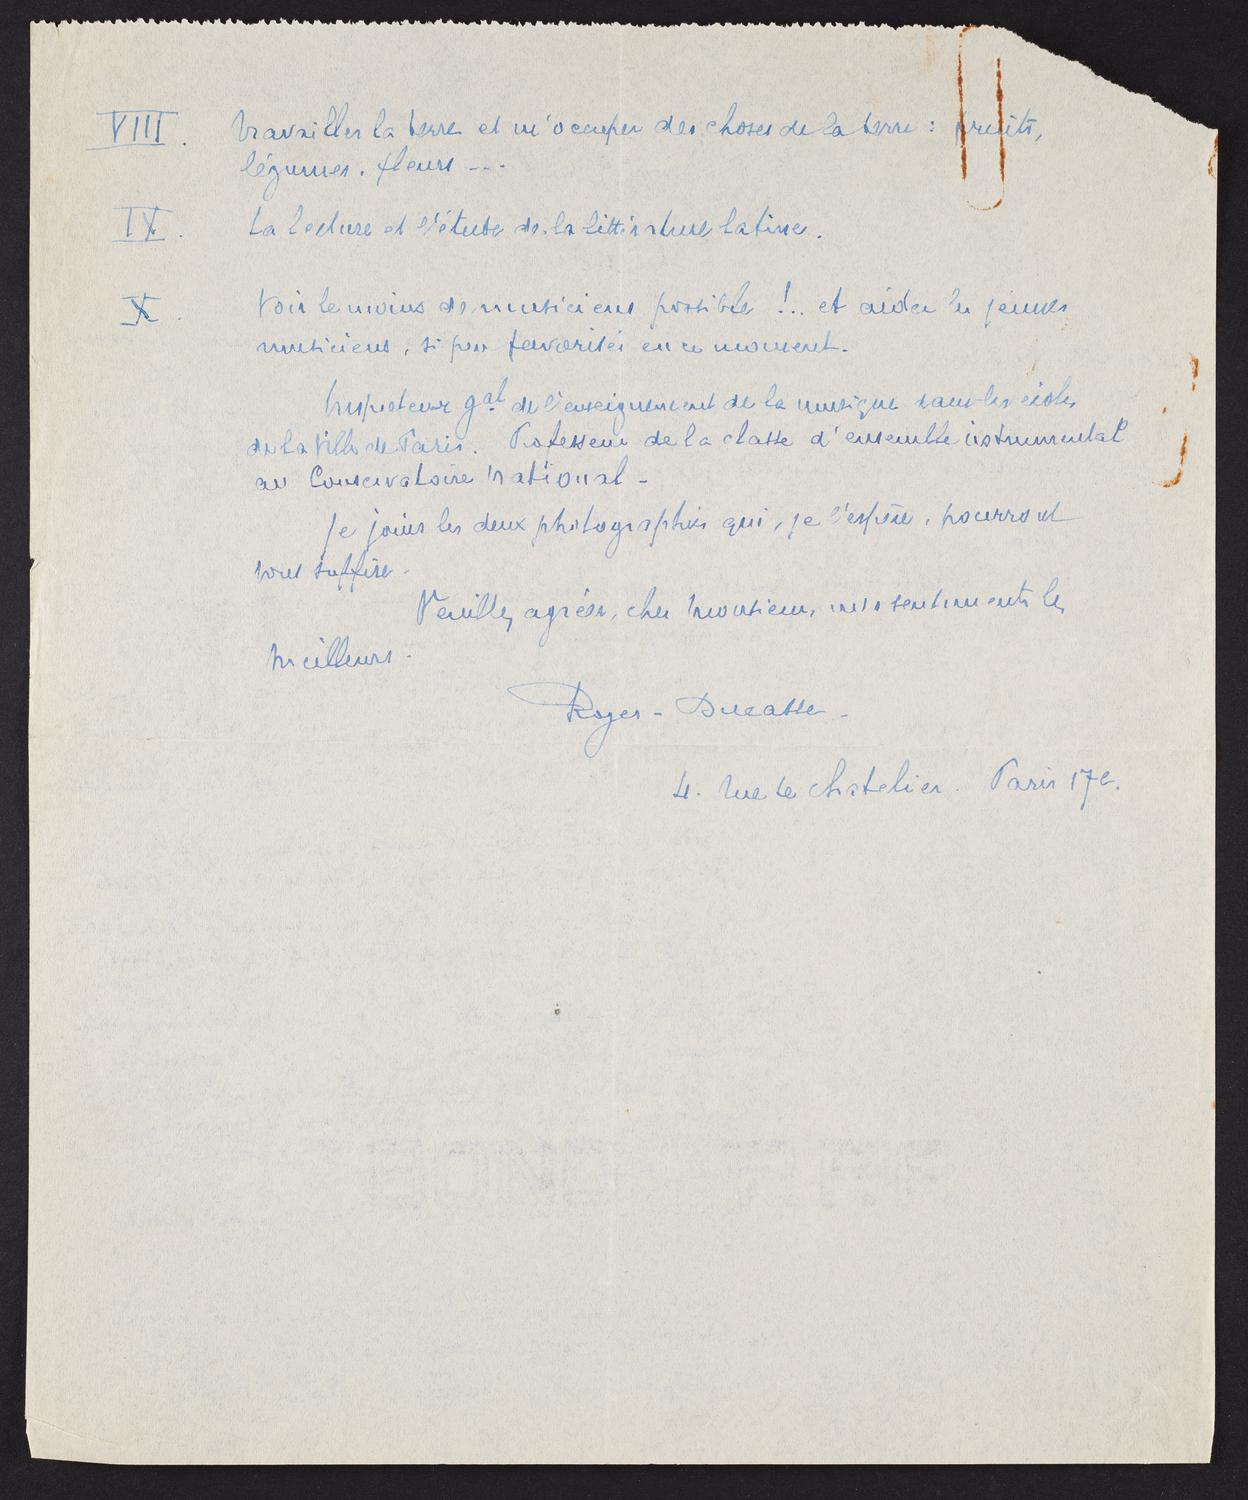 VIII. travailler la terre et m'occuper des choses de la terre : fruits,
légumes, fleurs ---
IX. La lecture et l'étude de la littérature latine.
X. Voir le moins de musiciens possible !.. et aider les jeunes
musiciens, si peu favorisés en ce moment.
Inspecteur gal de l'enseignement de la musique dans les écoles
de la Ville de Paris. Professeur de la classe d'ensemble instrumental
au Conservatoire National -
Je joins les deux photographies qui, je l'espère, pourront
vous suffire -
Veuillez agréer, cher Monsieur, mes sentiments les
meilleurs -
Roger-Ducasse -
4. rue le Chatelier. Paris 17e.